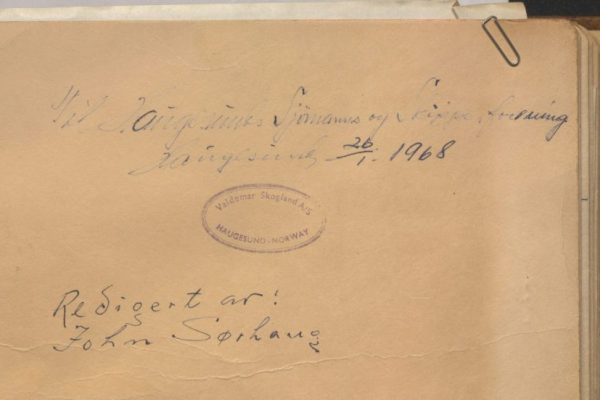 Til Haugesunds Sjömanns og Skipperforening
Haugesund 26/1. 1968
Valdemar Skogland A/S
HAUGESUND-NORWAY
Redigert av:
John Sørhaug